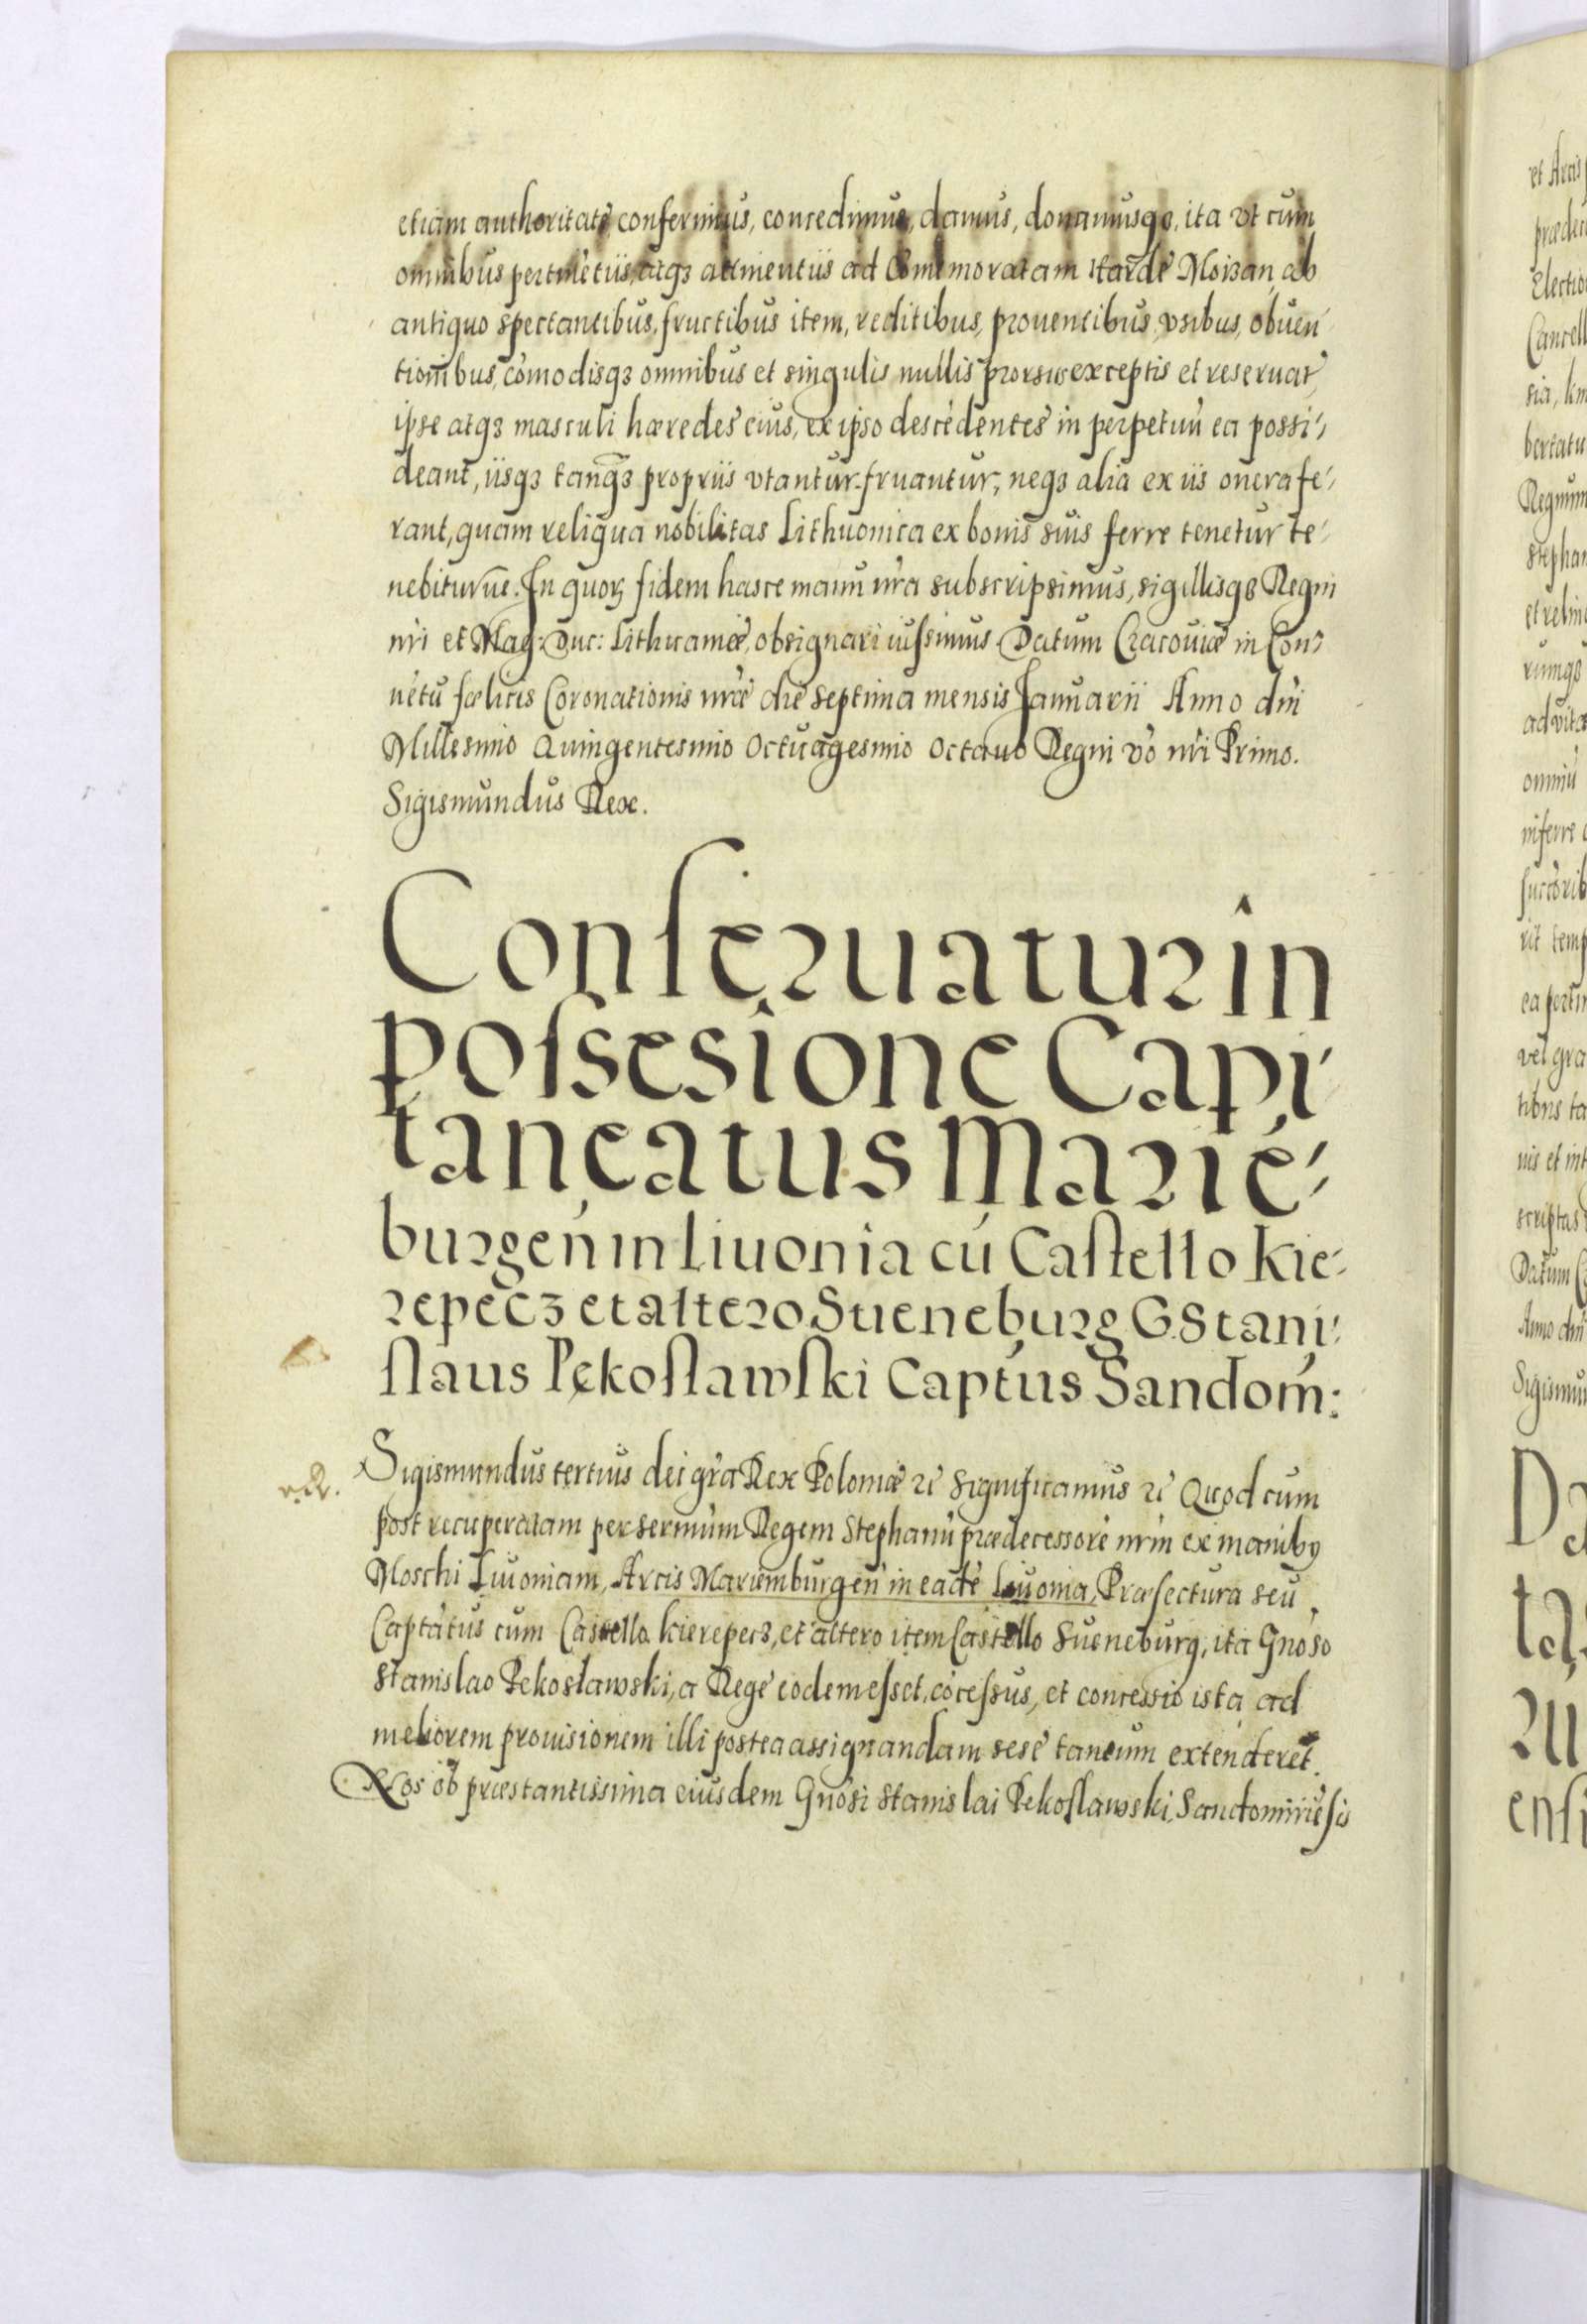 etiam authoritate conferimus, concedimus, damus, donamusqȝ, ita vt cum
omnibus pertinētiis, atqȝ attinentiis ad Comemoratam Harde Moizan, ab
antiquo spectantibus, fructibus item, reditibus, prouentibus, vsibus, obuen
tionibus, cōmodisqȝ omnibus et singulis nullis prorsus exceptis et reseruat,
ipse atqȝ masculi hæredes eius, ex ipso descēdentes in perpetuū ea possi,
deant, iisqȝ tanqȝ propriis vtantur fruantur, neqȝ alia ex iis onera fe,
rant, quam reliqua nobilitas Lithuonica ex bonis suis ferre tenetur te,
nebiturue. In quorꝝ fidem hasce manu nr̄a subscripsimus, sigillisqȝ Regni
nr̄i et Mag: Duc: Lithuaniæ, obsignari iussimus. Datum Cracouiæ in Con,
uētu fœlicis Coronationis nr̄æ die septima mensis Januarii Anno dni
Millesimo Quingentesimo Octuagesimo octauo Regni vo nr̄i Primo.
Sigismundus Rex.
Conſeruatur in
poſsesione Capi
tanęatus Marie,
burgen̄ in Liuonia cū Caſtello Kie,
repecȝ et altero Sueneburg G. Stani,
ſlaus Pękoſlawſki Captus Sandom:
Sigismundus tertius dei gr̄a Rex Poloniæ ꝛc̄ Significamus ꝛc̄ Quod cum
post recuperatam per sermūm Regem Stephanū prædecessorē nr̄m ex manibꝰ
Moschi Liuoniam, Arcis Mariemburgen̄ in eadē Liuonia, Præfectura seu
Captātus cum Castello kierepecȝ, et altero item Castello Sueneburg, ita Gnōso
Stanislao Pekosławski, a Rege eodem eſset, cōceſsus, et concessio ista ad
meliorem prouisionem illi postea assignandam sese tantum extenderet.
Nos ob præstantissima eiusdem Gnōsi Stanislai Pekoſlawski, Sandomiriēſis